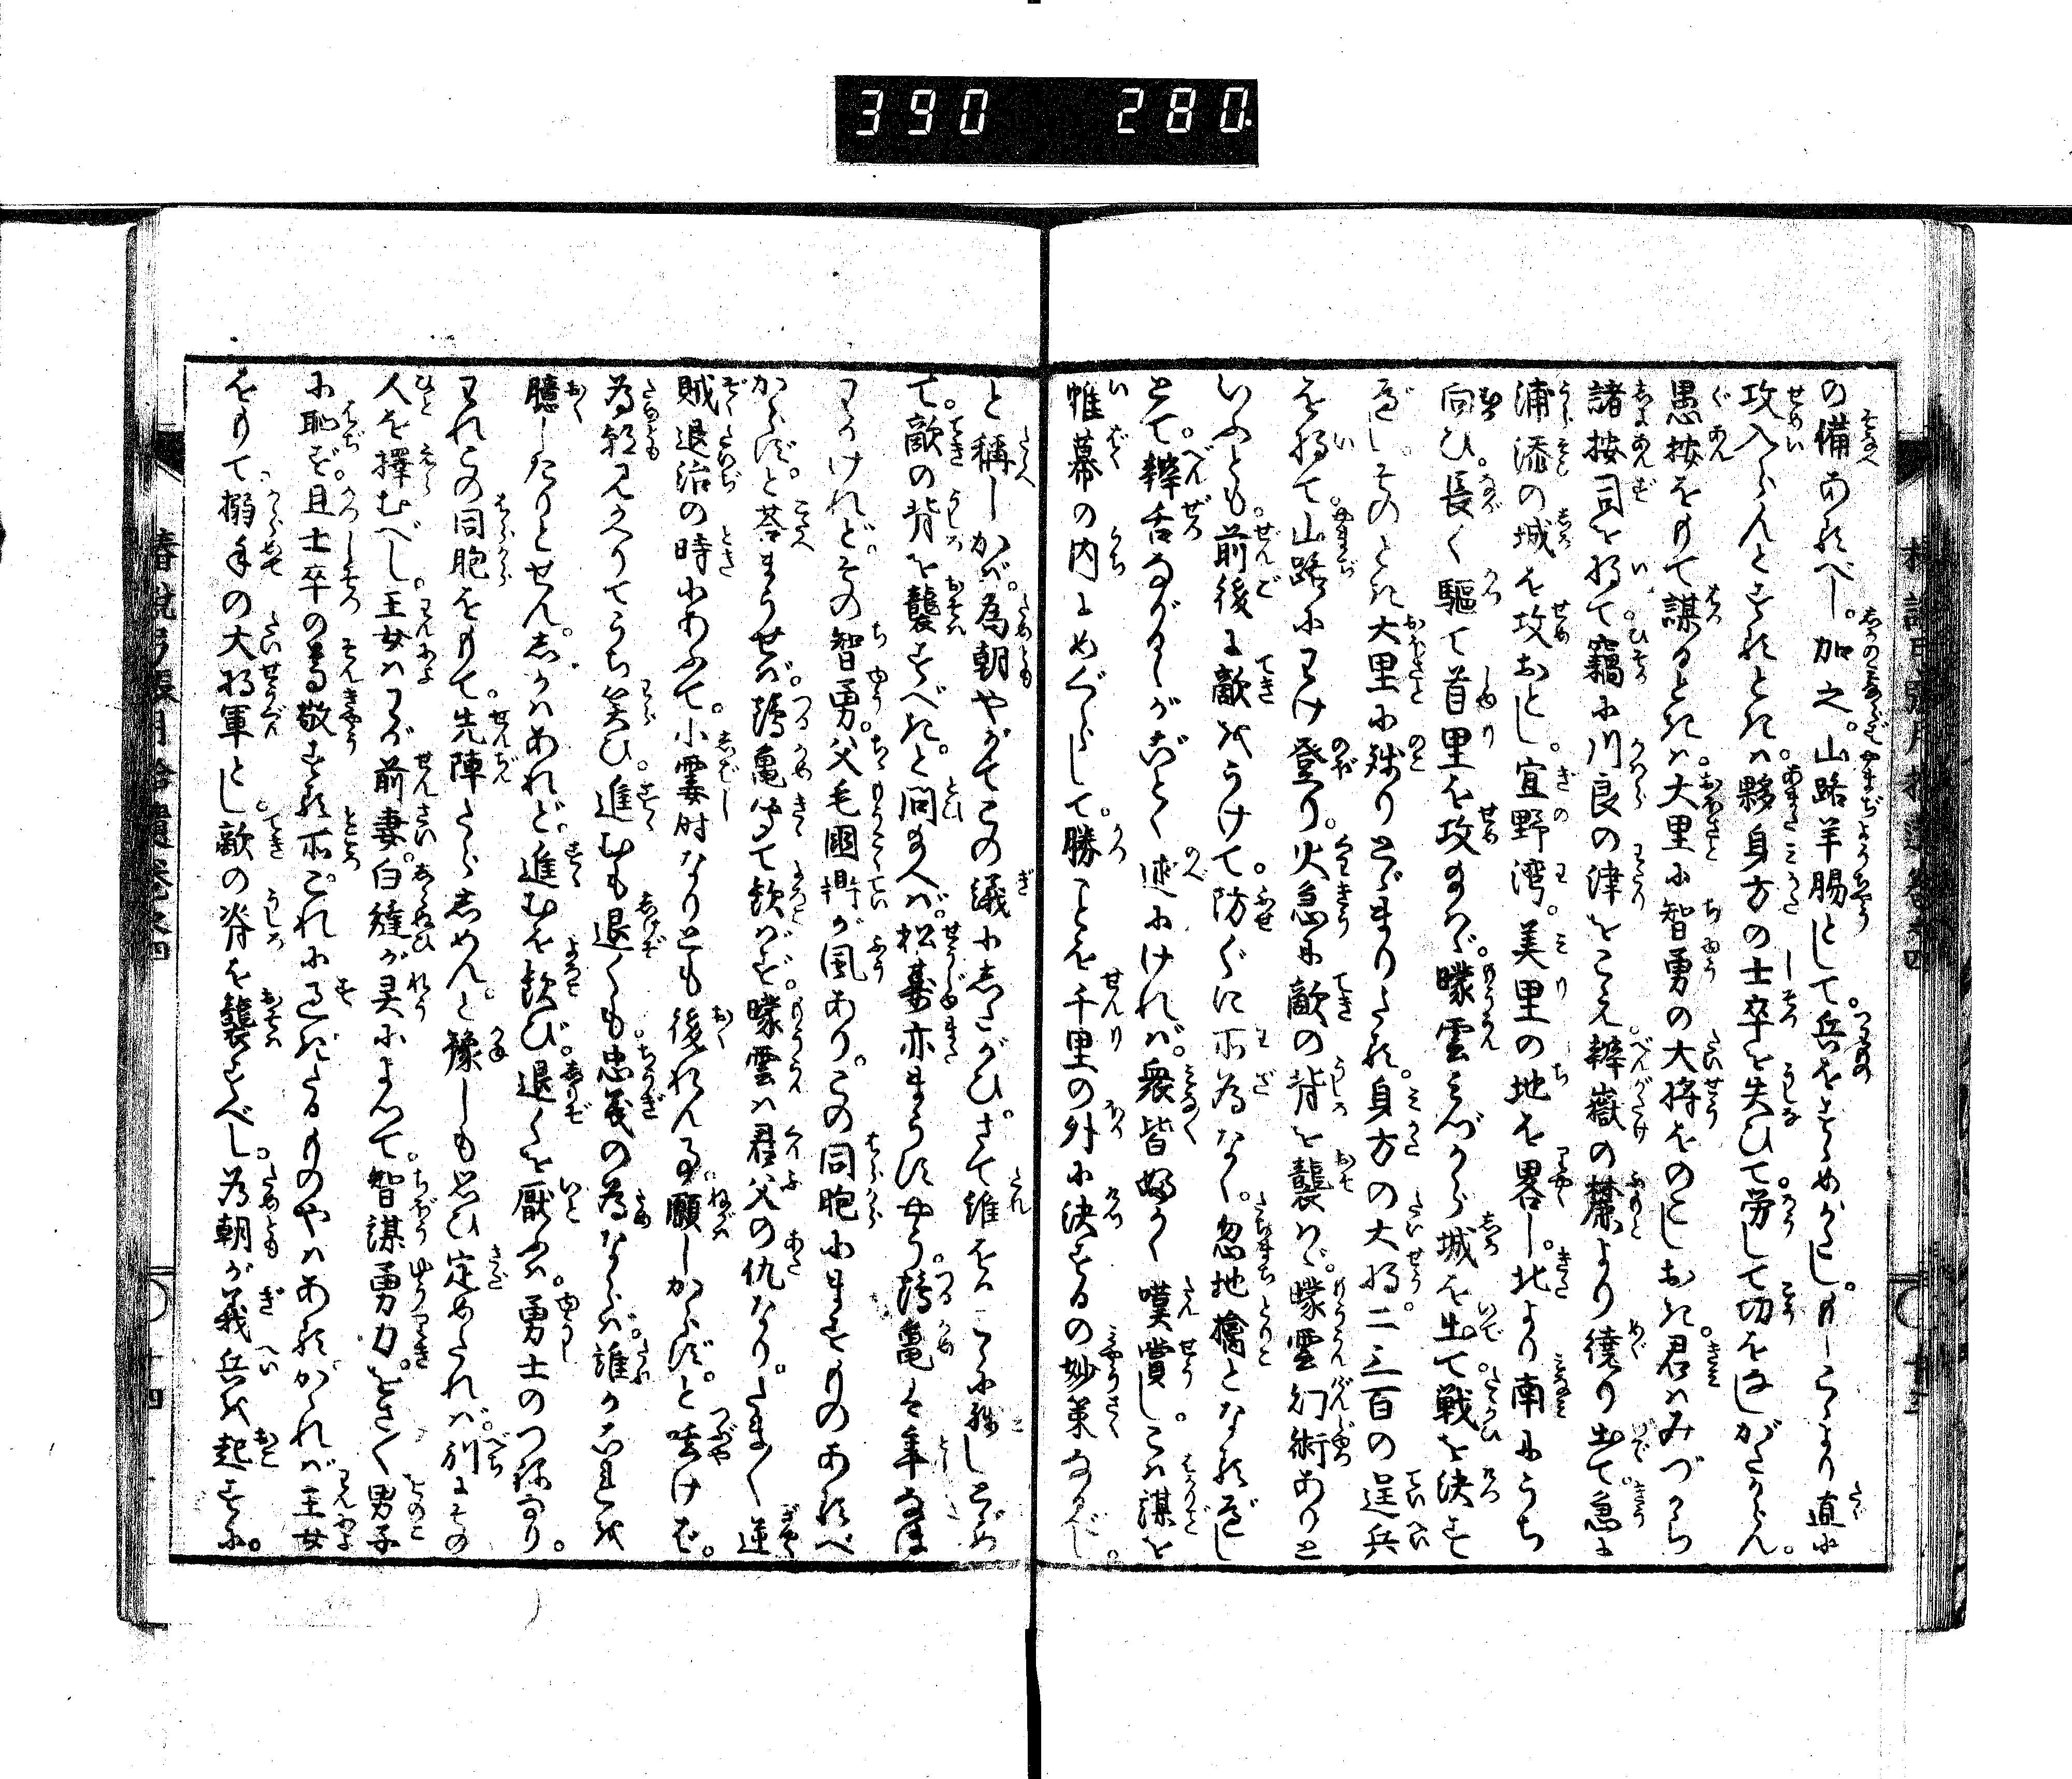 390 280
の備あるべし。加之。山路羊腸として。兵をすゝめがたし。もしこゝより直に
攻入らんとするときは。夥身方の士卒を失ひて。労して切をなしがたからん。
愚按をもて謀るときは。大里に智勇の大将をのこしおき。君はみづから
諸按司を将て。竊に川良の津をこえ。辨嶽の麓より繞り出て。急に
浦添の城を攻おとし。宜野湾。美里の地を畧し。北より南にうち
向ひ。長く駆て首里を攻め給はゞ。曚雲みづから城を出て。戦を決す
べし。そのとき大里に残りとゞまりたる。身方の大将。二三百の逞兵
を将て。山路にわけ登り。火急に敵の背を襲はゞ。曚雲幻術ありと
いふとも。前後に敵をうけて。防ぐに所為なく。忽地擒となるべし
とて。辨舌ながるゝがごとく述にければ。衆皆如く嘆賞し。こは謀を
帷幕の内にめぐらして。勝ことを千里の外に決するの妙策なるべし。
と称しかば。為朝やがてこの議にしたがひ。さて誰をかこゝに残しとゞめ
て。敵の背を襲すべき。と問給へば。松壽亦まうすやう。鶴亀は年なほ
わかけれど。その智勇。父毛國鼎が風あり。この同胞にますものあるべ
からず。と荅まうせば。鶴亀聞て歓ばず。曚雲は君父の仇なり。たま〱逆
賊退治の時にあふて。小霎時なりとも後れんは。願しからず。と呟けば。
為朝見かへりてうち笑ひ。進むも退くも。忠義の為ならば。誰かこれを
臆したりとせん。しかはあれど。進むを歓び。退くを厭ふは。勇士のつねなり。
われこの同胞をもて。先陣たらしめんと。豫しも思ひ定めたれば。別にその
人を擇むべし。王女はわが前妻。白縫が灵によつて。智謀勇力。をさ〱男子
に恥ず。且士卒の尊敬する所。これに過たるものやはあるかゝれば王女
をもて。搦手の大将軍とし。敵の脊を襲すべし。為朝が義兵を起すに。
椿説弓張月拾遺巻之四
十四